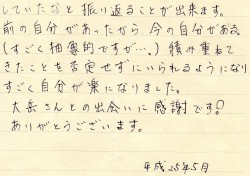 していたなと振り返ることが出来ます。
前の自分があったから、今の自分がある。
(すごく抽象的ですが…) 積み重ねて
きたことを否定せずにいられるようになり
すごく自分が楽になりました。
大岳さんとの出会いに感謝です!
ありがとうございます。
平成25年5月